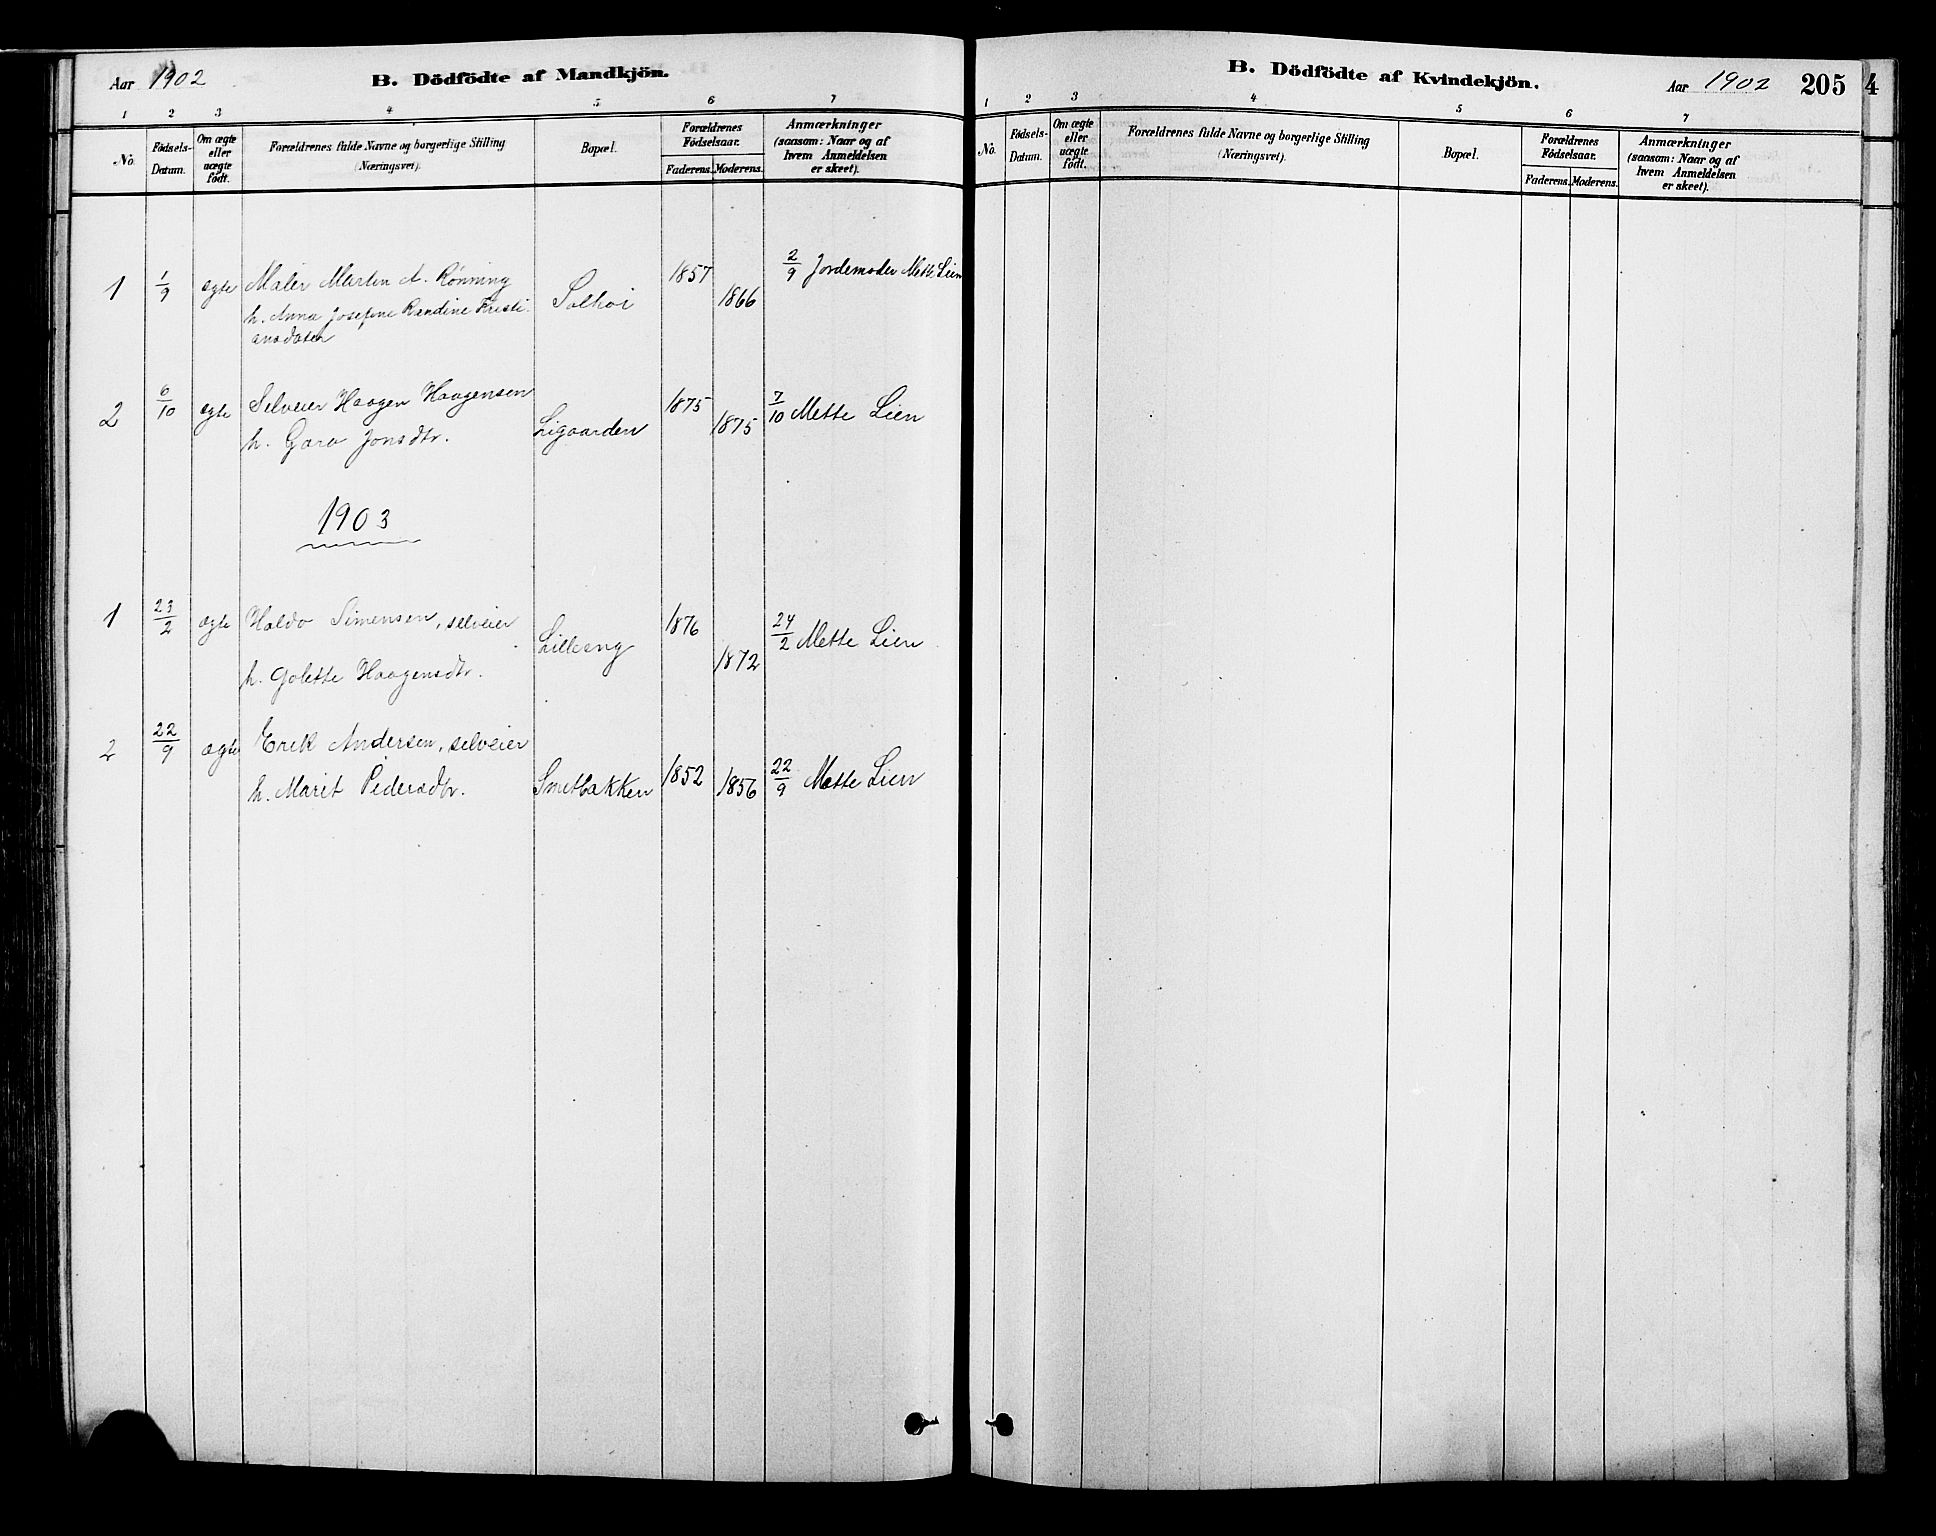 Aar 1902
B. Dödfödte af Mandkjön.
1 2 3 4 5 6 7
No.
Födsels-
Datum.
Om ægte
eller
uægte
født.
Forældrenes fulde Navne og borgerlige Stilling
(Næringsvei).
Bopæl.
Forældrenes
Födselsaar.
Faderens. Moderens.
Anmærkninger
(saasom: Naar og af
hvem Anmeldelsen
er skeet).
1 1/9 ægte Maler Marten A. Rönning
h. Anna Josefine Randine Kristi-
ansdater
Solhoi 1857 1866 2/9 Jordemoder Mette Lien
2 6/10 ægte Selveier Haagen Haagensen
h. Goro Jonsdtr.
Ligaarden 1875 1875 7/10 Mette Lien
1903
1 23/2 ægte Haldo Simensen, selveier
h. Golette Haagensdtr.
Lilleeng 1876 1872 24/2 Mette Lien
2 22/9 ægte Erik Andersen, selveier
h. Marit Pedersdtr.
Smetbakken 1852 1856 22/9 Mette Lien
B. Dödfödte af Kvindekjön.
Aar 1902 205 4
1 2 3 4 5 6 7
No.
Födsels-
Datum.
Om ægte
eller
uægte
födt.
Forældrenes fulde Navne og borgerlige Stilling
(Næringsvei).
Bopæl.
Forældrenes
Födselsaar.
Faderens. Moderens.
Anmærkninger
(saasom: Naar og af
hvem Anmeldelsen
er skeet).